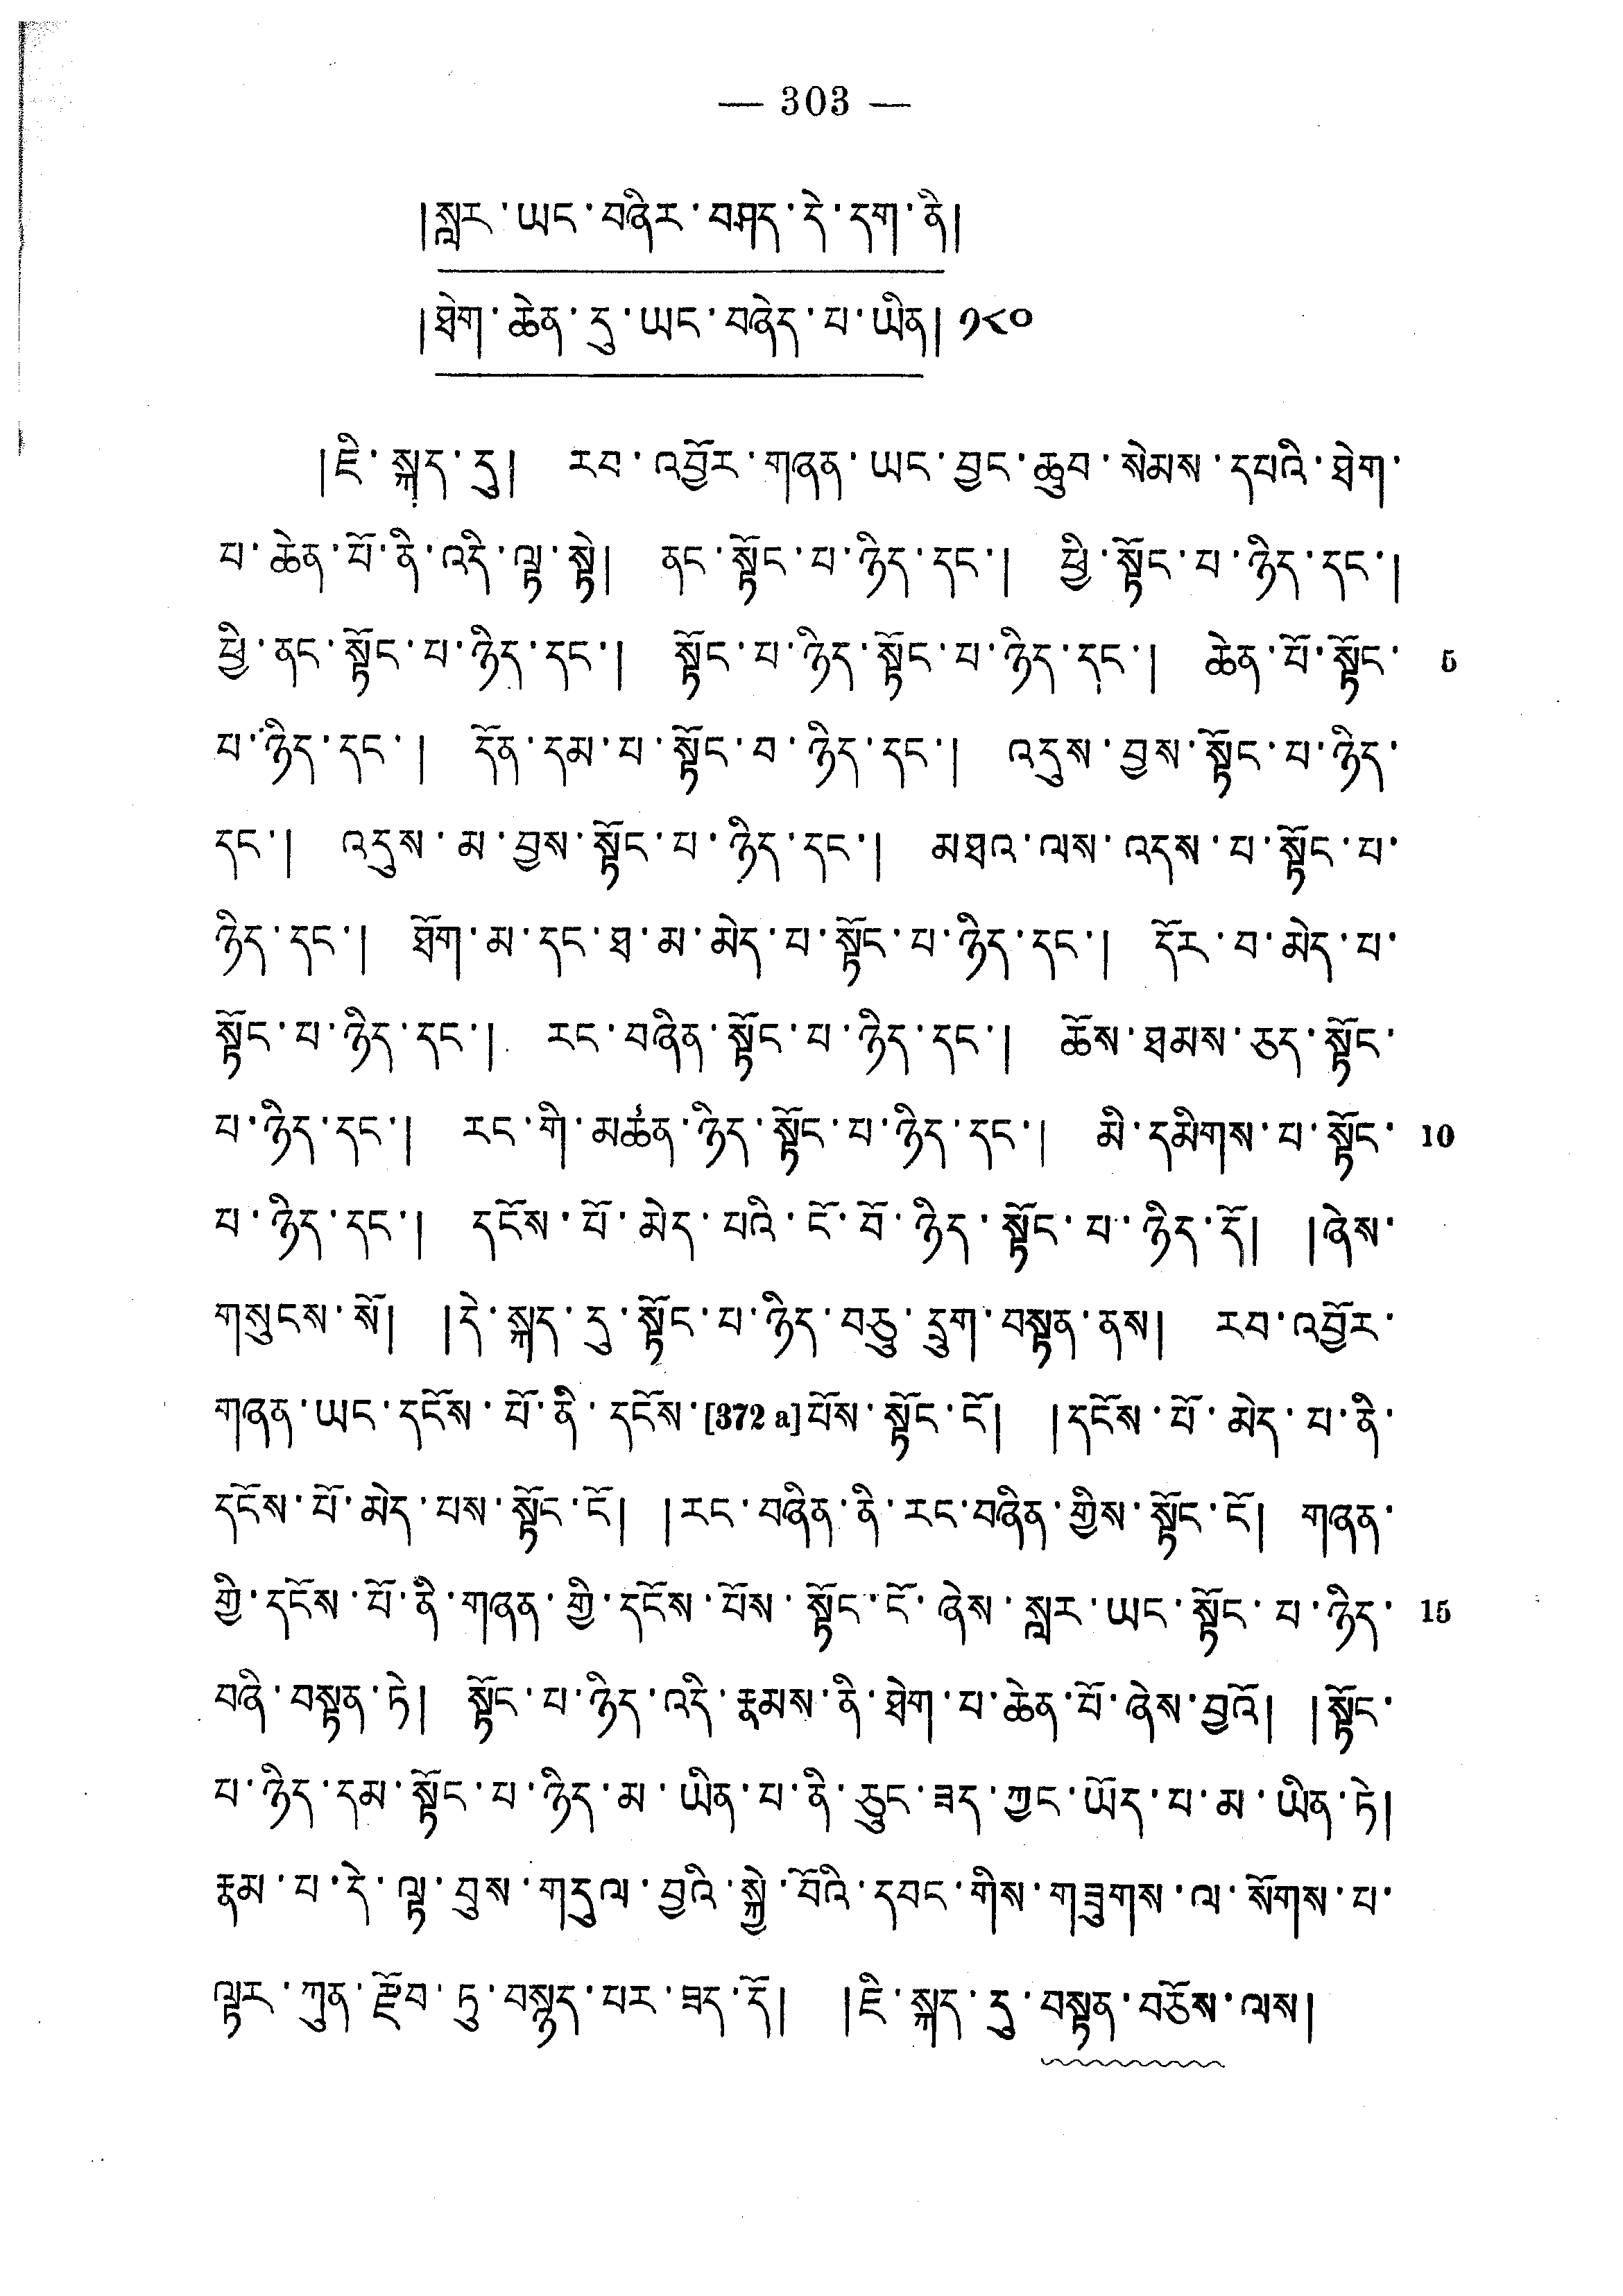 — 303 —
།སླར་ཡང་བཞིར་བཤད་དེ་དག་ནི།
།ཐེག་ཆེན་དུ་ཡང་བཞེད་པ་ཡིན། ༡༨༠
།ཇི་སྐད་དུ། རབ་འབྱོར་གཞན་ཡང་བྱང་ཆུབ་སེམས་དཔའི་ཐེག་
པ་ཆེན་པོ་ནི་འདི་ལྟ་སྟེ། ནང་སྟོང་པ་ཉིད་དང་། ཕྱི་སྟོང་པ་ཉིད་དང་།
ཕྱི་ནང་སྟོང་པ་ཉིད་དང་། སྟོང་པ་ཉིད་སྟོང་པ་ཉིད་དང་། ཆེན་པོ་སྟོང་ 5
པ་ཉིད་དང་། དོན་དམ་པ་སྟོང་བ་ཉིད་དང་། འདུས་བྱས་སྟོང་པ་ཉིད་
དང་། འདུས་མ་བྱས་སྟོང་པ་ཉིད་དང་། མཐའ་ལས་འདས་པ་སྟོང་པ་
ཉིད་དང་། ཐོག་མ་དང་ཐ་མ་མེད་པ་སྟོང་པ་ཉིད་དང་། དོར་བ་མེད་པ་
སྟོང་པ་ཉིད་དང་། རང་བཞིན་སྟོང་པ་ཉིད་དང་། ཆོས་ཐམས་ཅད་སྟོང་
པ་ཉིད་དང་། རང་གི་མཚན་ཉིད་སྟོང་པ་ཉིད་དང་། མི་དམིགས་པ་སྟོང་ 10
པ་ཉིད་དང་། དངོས་པོ་མེད་པའི་ངོ་བོ་ཉིད་སྟོང་པ་ཉིད་དོ། །ཞེས་
གསུངས་སོ། །དེ་སྐད་དུ་སྟོང་པ་ཉིད་བཅུ་དྲུག་བསྟན་ནས། རབ་འབྱོར་
གཞན་ཡང་དངོས་པོ་ནི་དངོས་[372 a]པོས་སྟོང་ངོ། །དངོས་པོ་མེད་པ་ནི་
དངོས་པོ་མེད་པས་སྟོང་ངོ། །རང་བཞིན་ནི་རང་བཞིན་གྱིས་སྟོང་ངོ། གཞན་
གྱི་དངོས་པོ་ནི་གཞན་གྱི་དངོས་པོས་སྟོང་ངོ་ཞེས་སླར་ཡང་སྟོང་པ་ཉིད་ 15
བཞི་བསྟན་ཏེ། སྟོང་པ་ཉིད་འདི་རྣམས་ནི་ཐེག་པ་ཆེན་པོ་ཞེས་བྱའོ། །སྟོང་
པ་ཉིད་དམ་སྟོང་པ་ཉིད་མ་ཡིན་པ་ནི་ཅུང་ཟད་ཀྱང་ཡོད་པ་མ་ཡིན་ཏེ།
རྣམ་པ་དེ་ལྟ་བུས་གདུལ་བྱའི་སྐྱེ་བོའི་དབང་གིས་གཟུགས་ལ་སོགས་པ་
ལྟར་ཀུན་རྫོབ་ཏུ་བསྙད་པར་ཟད་དོ། །ཇི་སྐད་དུ་བསྟན་བཅོས་ལས།